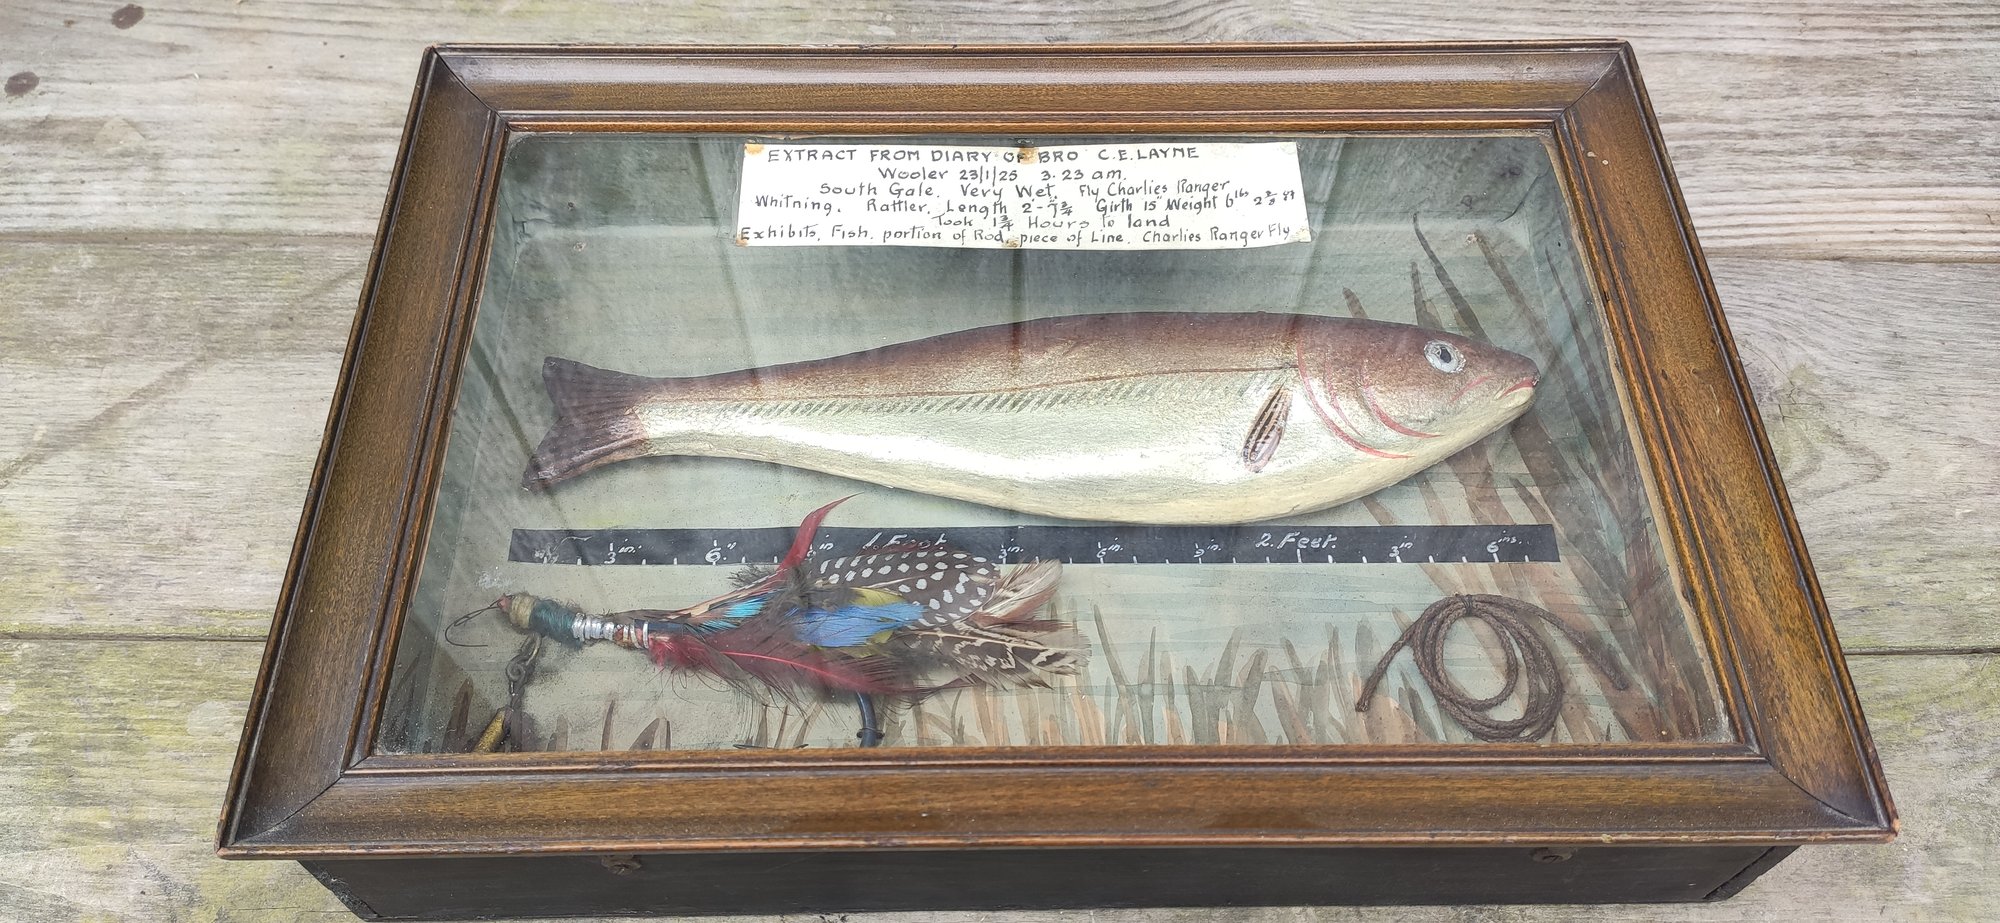 EXTRACT FROM DIARY OF BRO C.E. LAYNE
Wooler 23/1/25 3.23 am.
South Gale. Very Wet. Fly Charlies Ranger
Whitning. Rattler. Length 2'-7¾" Girth 15" Weight 6 lbs
Took 1¾ Hours to land
Exhibits. Fish. portion of Rod, piece of Line. Charlies Ranger Fly
3 in. 6." in 1. Foot. 3 in. 6 in. 9 in. 2. Feet. 3 in 6 ins.